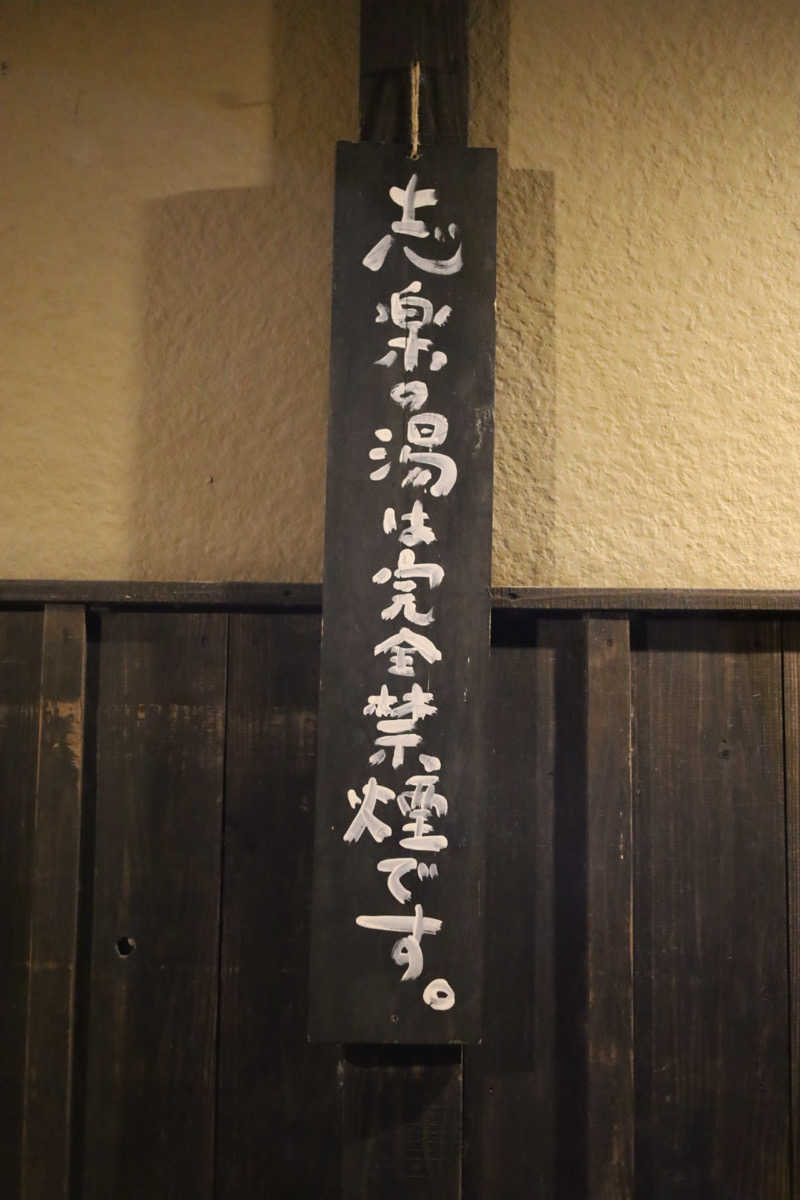 志楽の湯は完全禁煙です。